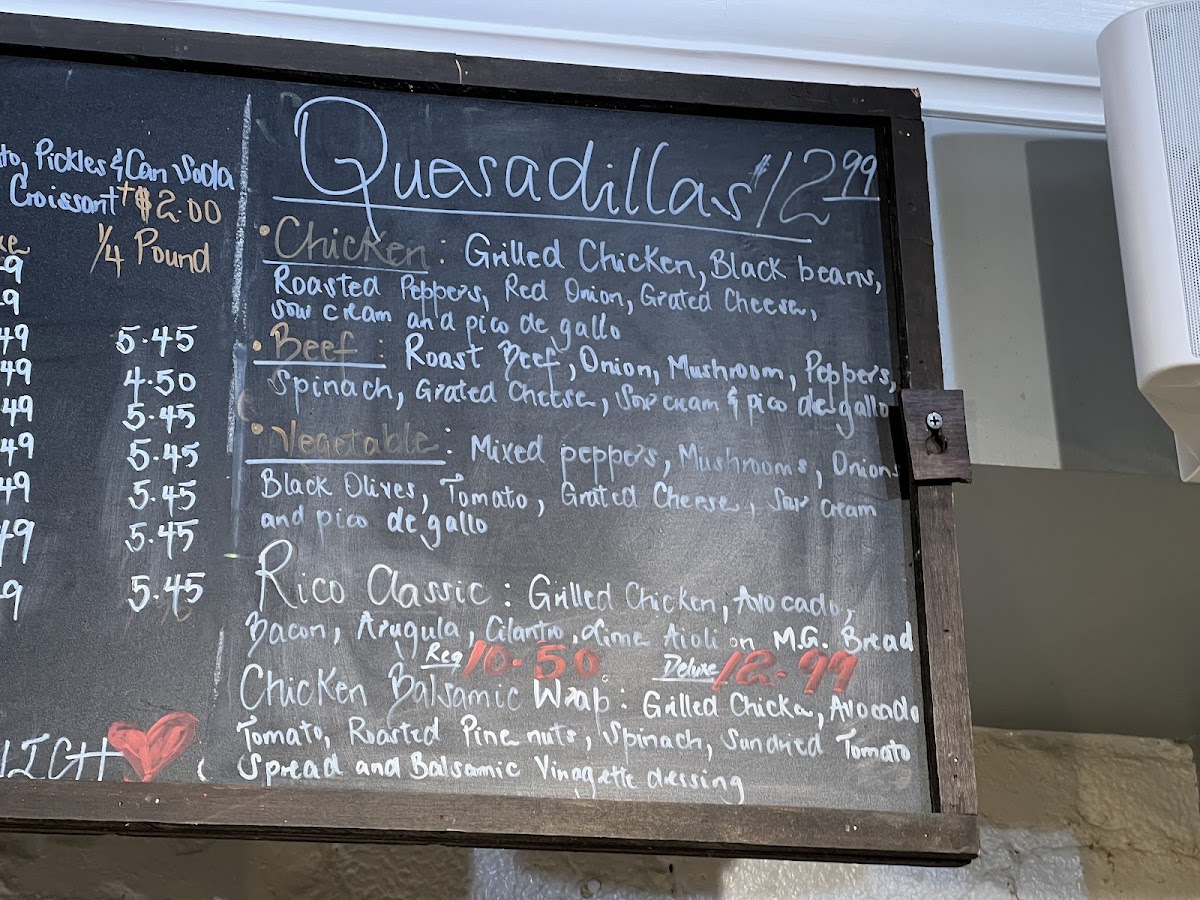 Pickles & Can Soda
Croissant + $2.00
1/4 Pound
9
9
49
5.45
49
4.50
49
5.45
49
5.45
49
5.45
49
5.45
9
5.45
Quesadillas $12.99
• Chicken : Grilled Chicken, Black beans,
Roasted Peppers, Red Onion, Grated Cheese,
Sour cream and pico de gallo
• Beef : Roast Beef, Onion, Mushroom, Peppers,
Spinach, Grated Cheese, Sour cream & pico de gallo
• Vegetable : Mixed peppers, Mushrooms, Onions
Black Olives, Tomato, Grated Cheese, Sour Cream
and pico de gallo
Rico Classic : Grilled Chicken, Avocado,
Bacon, Arugula, Cilantro, Lime Aioli on M.G. Bread
Reg 10.50 Deluxe 12.99
Chicken Balsamic Wrap : Grilled Chicken, Avocado
Tomato, Roasted Pine nuts, Spinach, Sundried Tomato
Spread and Balsamic Vinagette dressing